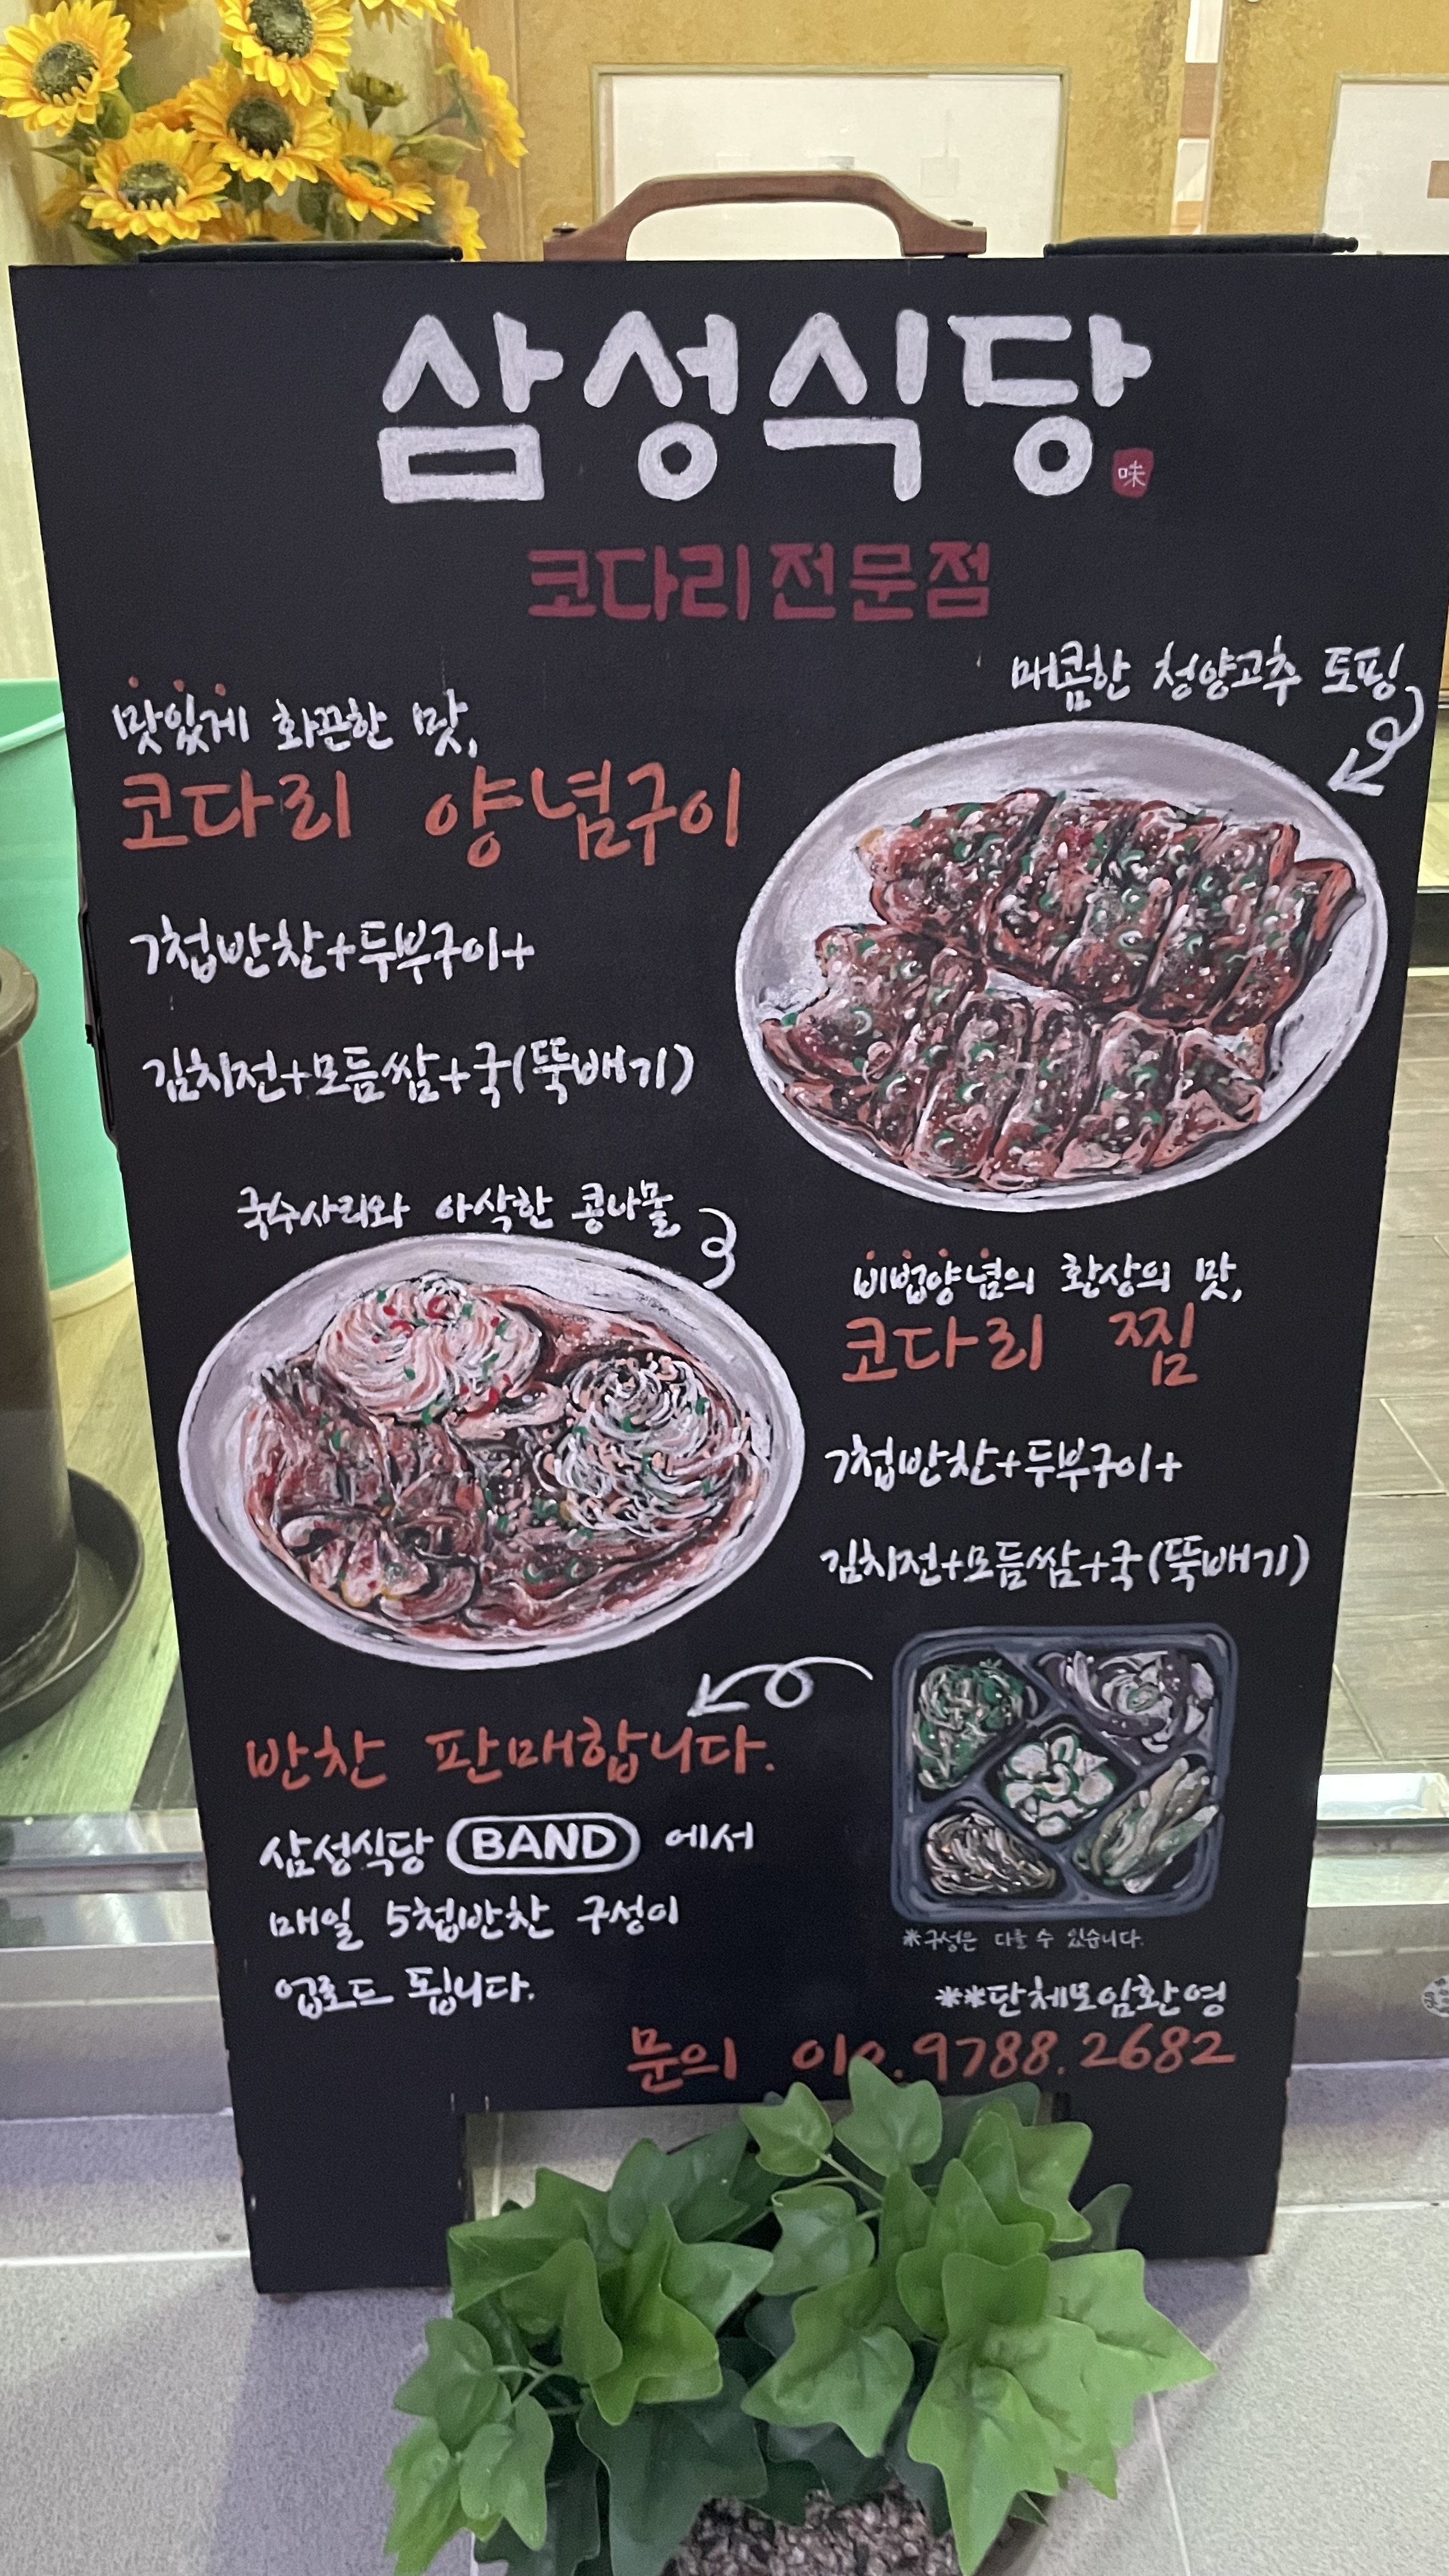 삼성식당
味
코다리전문점
매콤한 청양고추 토핑
맛있게 화끈한 맛,
코다리 양념구이
7첩반찬+두부구이+
김치전+모듬쌈+국(뚝배기)
국수사리와 아삭한 콩나물
비법양념의 환상의 맛,
코다리 찜
7첩반찬+두부구이+
김치전+모듬쌈+국(뚝배기)
반찬 판매합니다.
삼성식당 BAND 에서
매일 5첩반찬 구성이
업로드 됩니다.
*구성은 다를 수 있습니다.
**단체모임환영
문의 010.9788.2682